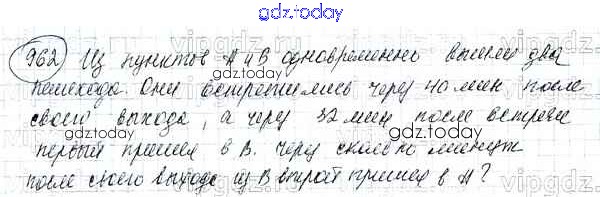 gdz.today
962) Из пунктов А и В одновременно вышли два
пешехода. Они встретились через 40 мин после
своего выхода, а через 32 мин после встречи
первый пришел в В. Через сколько минут
после своего выхода из В второй пришел в А?
gdz.today
gdz.today
gdz.today
gdz.today
vipgdz.ru
vipgdz.ru